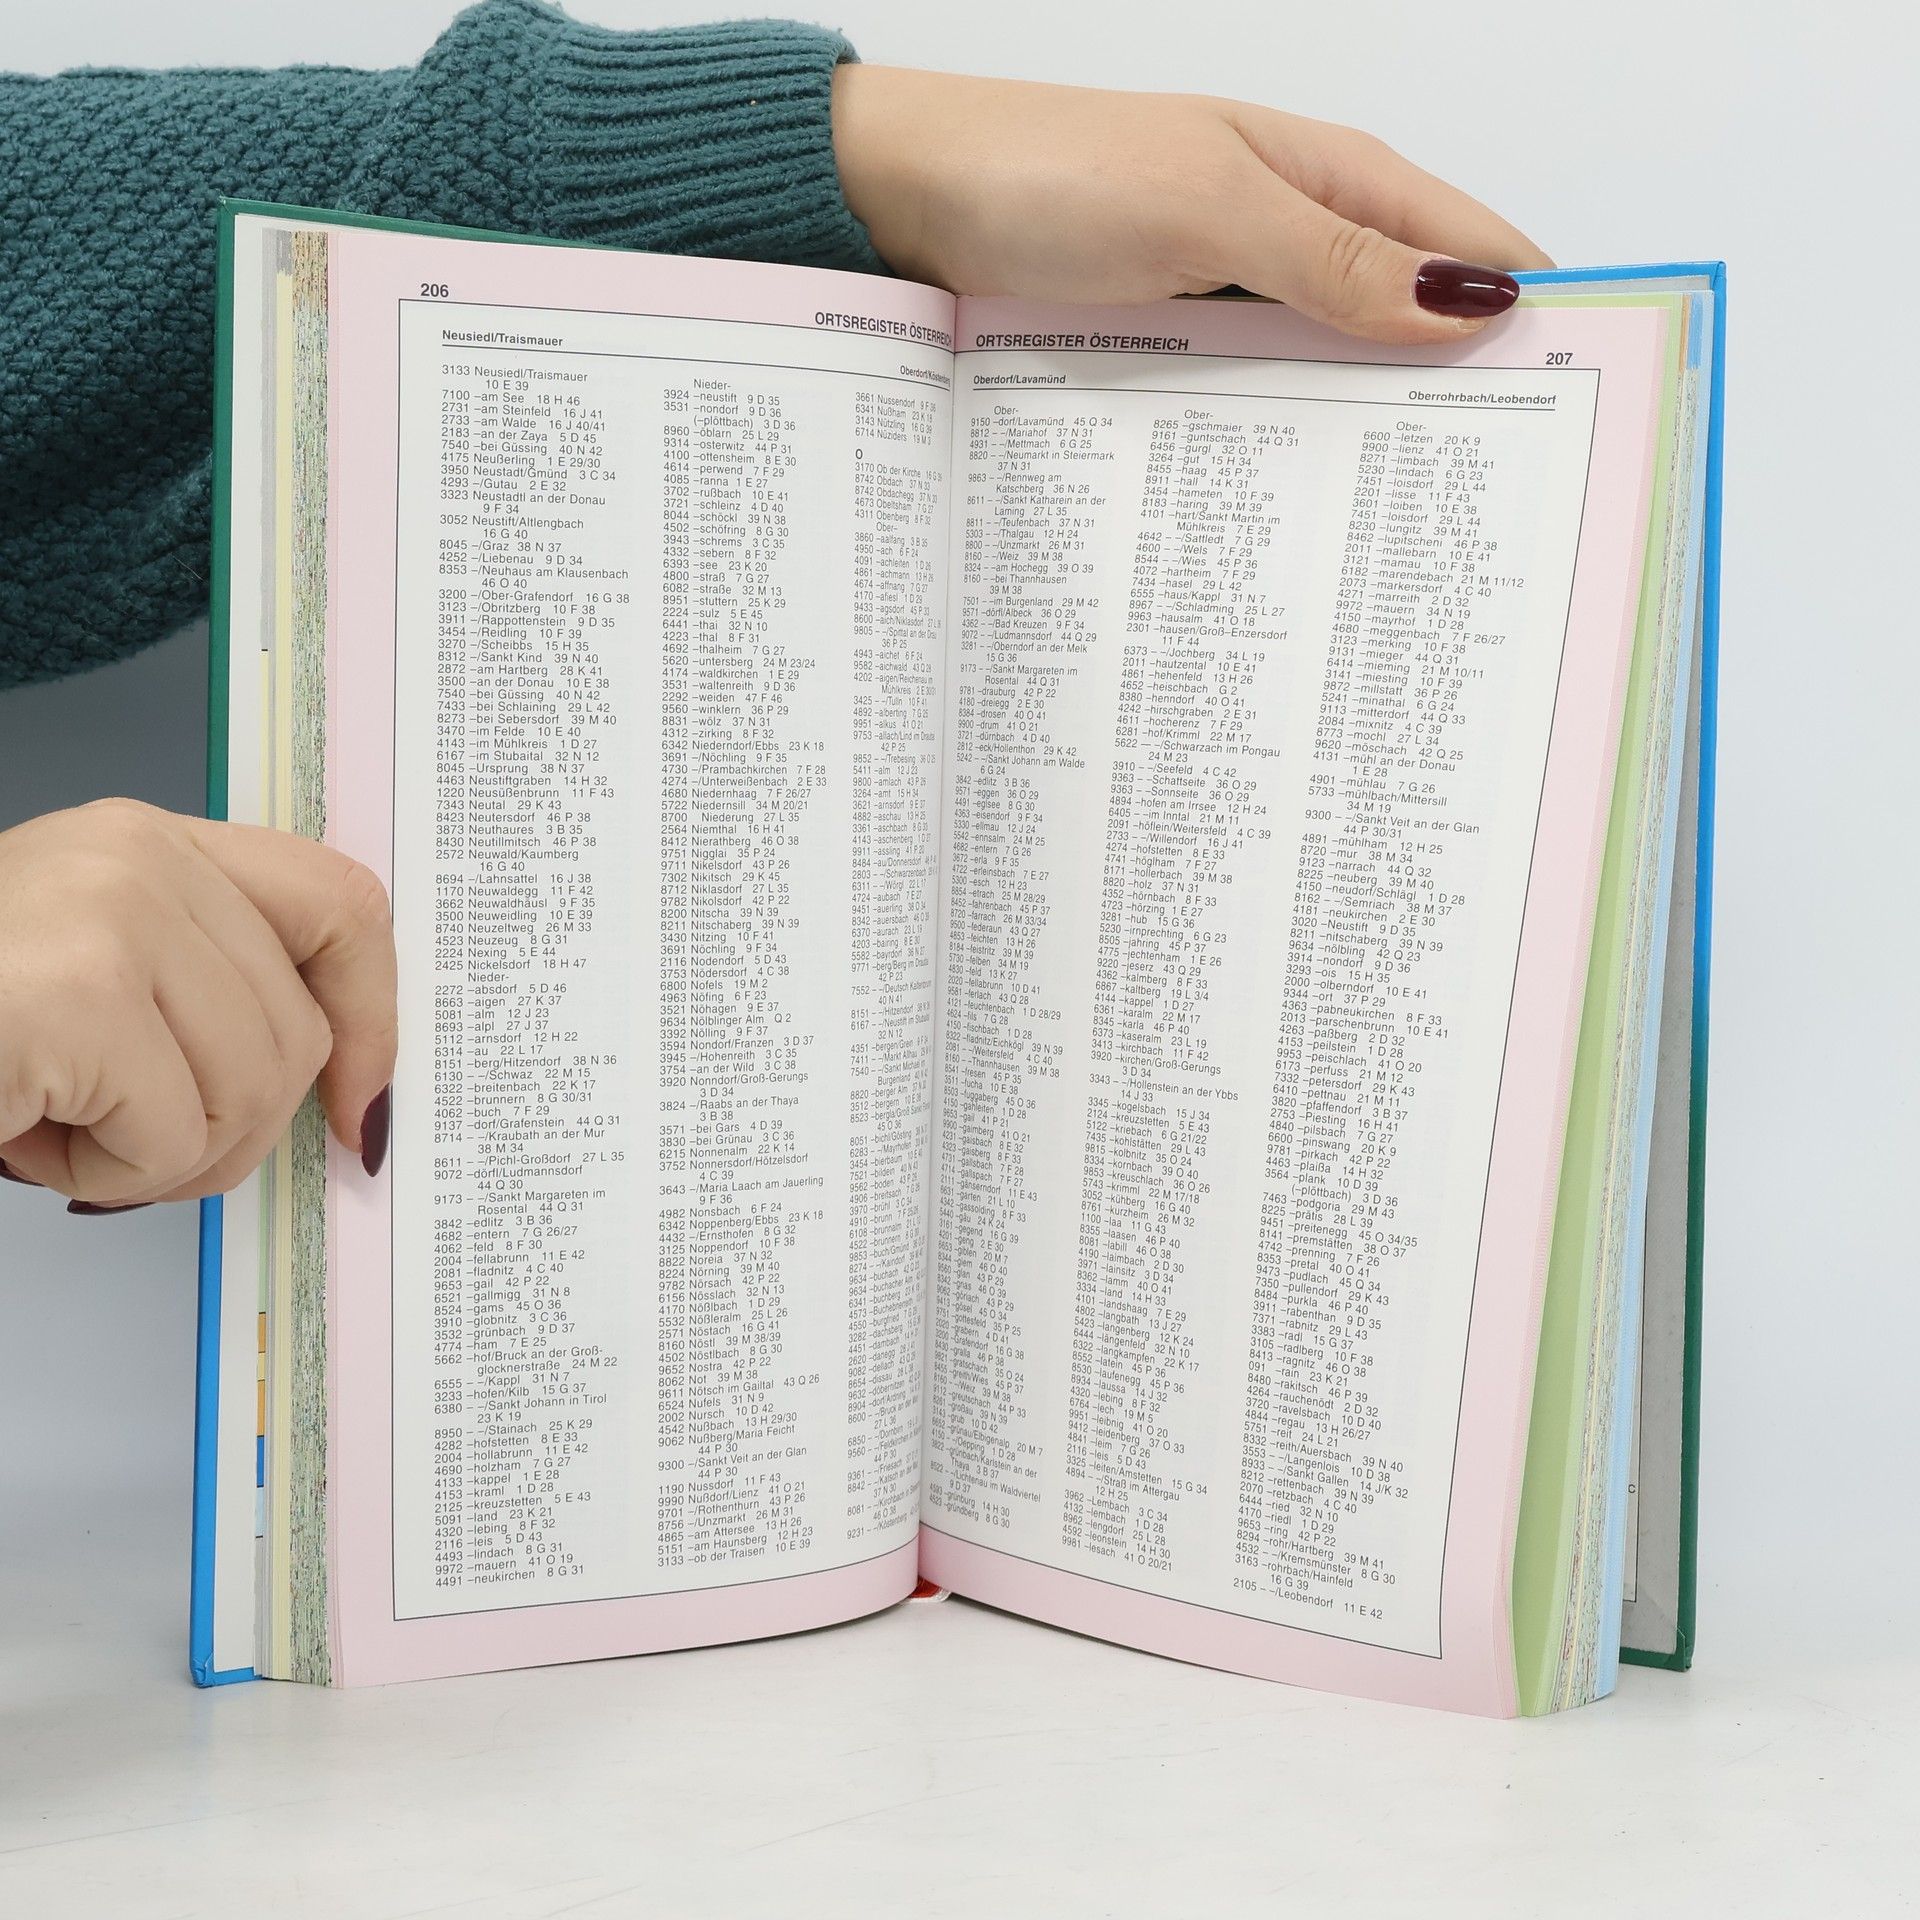 206
ORTSREGISTER ÖSTERREICH
Neusiedl/Traismauer
Oberdorf/Köstenberg
3133 Neusiedl/Traismauer
10 E 39
7100 –am See 18 H 46
2731 –am Steinfeld 16 J 41
2733 –am Walde 16 J 40/41
2183 –an der Zaya 5 D 45
7540 –bei Güssing 40 N 42
4175 Neußerling 1 E 29/30
3950 Neustadt/Gmünd 3 C 34
4293 –/Gutau 2 E 32
3323 Neustadtl an der Donau
9 F 34
3052 Neustift/Altlengbach
16 G 40
8045 –/Graz 38 N 37
4252 –/Liebenau 9 D 34
8353 –/Neuhaus am Klausenbach
46 O 40
3200 –/Ober-Grafendorf 16 G 38
3123 –/Obritzberg 10 F 38
3911 –/Rappottenstein 9 D 35
3454 –/Reidling 10 F 39
3270 –/Scheibbs 15 H 35
8312 –/Sankt Kind 39 N 40
2872 –am Hartberg 28 K 41
3500 –an der Donau 10 E 38
7540 –bei Güssing 40 N 42
7433 –bei Schlaining 29 L 42
8273 –bei Sebersdorf 39 M 40
3470 –im Felde 10 E 40
4143 –im Mühlkreis 1 D 27
6167 –im Stubaital 32 N 12
8045 –Ursprung 38 N 37
4463 Neustiftgraben 14 H 32
1220 Neusüßenbrunn 11 F 43
7343 Neutal 29 K 43
8423 Neutersdorf 46 P 38
3873 Neuthaures 3 B 35
8430 Neutillmitsch 46 P 38
2572 Neuwald/Kaumberg
16 G 40
8694 –/Lahnsattel 16 J 38
1170 Neuwaldegg 11 F 42
3662 Neuwaldhäusl 9 F 35
3500 Neuweidling 10 E 39
8740 Neuzeltweg 26 M 33
4523 Neuzeug 8 G 31
2224 Nexing 5 E 44
2425 Nickelsdorf 18 H 47
Nieder-
2272 –absdorf 5 D 46
8663 –aigen 27 K 37
5081 –alm 12 J 23
8693 –alpl 27 J 37
5112 –arnsdorf 12 H 22
6314 –au 22 L 17
8151 –berg/Hitzendorf 38 N 36
6130 – –/Schwaz 22 M 15
6322 –breitenbach 22 K 17
4522 –brunnern 8 G 30/31
4062 –buch 7 F 29
9137 –dorf/Grafenstein 44 Q 31
8714 – –/Kraubath an der Mur
38 M 34
8611 – –/Pichl-Großdorf 27 L 35
9072 –dörfl/Ludmannsdorf
44 Q 30
9173 – –/Sankt Margareten im
Rosental 44 Q 31
3842 –edlitz 3 B 36
4682 –entern 7 G 26/27
4062 –feld 8 F 30
2004 –fellabrunn 11 E 42
2081 –fladnitz 4 C 40
9653 –gail 42 P 22
6521 –gallmigg 31 N 8
8524 –gams 45 O 36
3910 –globnitz 3 C 36
3532 –grünbach 9 D 37
4774 –ham 7 E 25
5662 –hof/Bruck an der Groß-
glocknerstraße 24 M 22
6555 – –/Kappl 31 N 7
3233 –hofen/Kilb 15 G 37
6380 – –/Sankt Johann in Tirol
23 K 19
8950 – –/Stainach 25 K 29
4282 –hofstetten 8 E 33
2004 –hollabrunn 11 E 42
4690 –holzham 7 G 27
4133 –kappel 1 E 28
4153 –kraml 1 D 28
2125 –kreuzstetten 5 E 43
5091 –land 23 K 21
4320 –lebing 8 F 32
2116 –leis 5 D 43
4493 –lindach 8 G 31
9972 –mauern 41 O 19
4491 –neukirchen 8 G 31
Nieder-
3924 –neustift 9 D 35
3531 –nondorf 9 D 36
(–plöttbach) 3 D 36
8960 –öblarn 25 L 29
9314 –osterwitz 44 P 31
4100 –ottensheim 8 E 30
4614 –perwend 7 F 29
4085 –ranna 1 E 27
3702 –rußbach 10 E 41
3721 –schleinz 4 D 40
8044 –schöckl 39 N 38
4502 –schöfring 8 G 30
3943 –schrems 3 C 35
4332 –sebern 8 F 32
6393 –see 23 K 20
4800 –straß 7 G 27
6082 –straße 32 M 13
8951 –stuttern 25 K 29
2224 –sulz 5 E 45
6441 –thai 32 N 10
4223 –thal 8 F 31
4692 –thalheim 7 G 27
5620 –untersberg 24 M 23/24
4174 –waldkirchen 1 E 29
3531 –waltenreith 9 D 36
2292 –weiden 47 F 46
9560 –winklern 36 P 29
8831 –wölz 37 N 31
4312 –zirking 8 F 32
6342 Niederndorf/Ebbs 23 K 18
3691 –/Nöchling 9 F 35
4730 –/Prambachkirchen 7 F 28
4274 –/Unterweißenbach 2 E 33
4680 Niedernhaag 7 F 26/27
5722 Niedernsill 34 M 20/21
8700 Niederung 27 L 35
2564 Niemthal 16 H 41
8412 Nierathberg 46 O 38
9751 Nigglai 35 P 24
9711 Nikelsdorf 43 P 26
7302 Nikitsch 29 K 45
8712 Niklasdorf 27 L 35
9782 Nikolsdorf 42 P 22
8200 Nitscha 39 N 39
8211 Nitschaberg 39 N 39
3430 Nitzing 10 F 41
3691 Nöchling 9 F 34
2116 Nodendorf 5 D 43
3753 Nödersdorf 4 C 38
6800 Nofels 19 M 2
4963 Nöfing 6 F 23
3521 Nöhagen 9 E 37
9634 Nölblinger Alm Q 2
3392 Nölling 9 F 37
3594 Nondorf/Franzen 3 D 37
3945 –/Hohenreith 3 C 35
3754 –an der Wild 3 C 38
3920 Nonndorf/Groß-Gerungs
3 D 34
3824 –/Raabs an der Thaya
3 B 38
3571 –bei Gars 4 D 39
3830 –bei Grünau 3 C 36
6215 Nonnenalm 22 K 14
3752 Nonnersdorf/Hötzelsdorf
4 C 39
3643 –/Maria Laach am Jauerling
9 F 36
4982 Nonsbach 6 F 24
6342 Noppenberg/Ebbs 23 K 18
4432 –/Ernsthofen 8 G 32
3125 Noppendorf 10 F 38
8822 Noreia 37 N 32
8224 Nörning 39 M 40
9782 Nörsach 42 P 22
6156 Nösslach 32 N 13
4170 Nößlbach 1 D 29
5532 Nößleralm 25 L 26
2571 Nöstach 16 G 41
8160 Nöstl 39 M 38/39
4502 Nöstlbach 8 G 30
9652 Nostra 42 P 22
8062 Not 39 M 38
9611 Nötsch im Gailtal 43 Q 26
6524 Nufels 31 N 9
2002 Nursch 10 D 42
4542 Nußbach 13 H 29/30
9062 Nußberg/Maria Feicht
44 P 30
9300 –/Sankt Veit an der Glan
44 P 30
1190 Nussdorf 11 F 43
9990 Nußdorf/Lienz 41 O 21
9701 –/Rothenthurn 43 P 26
8756 –/Unzmarkt 26 M 31
4865 –am Attersee 13 H 26
5151 –am Haunsberg 12 H 23
3133 –ob der Traisen 10 E 39
3661 Nussendorf 9 F 36
6341 Nußham 23 K 18
3143 Nützling 16 G 39
6714 Nüziders 19 M 3
O
3170 Ob der Kirche 16 G
8742 Obdach 37 N 33
8742 Obdachegg 37 N 33
4673 Obeltsham 7 G 27
4311 Obenberg 8 F 32
Ober-
3860 –aalfang 3 B 35
4950 –ach 6 F 24
4091 –achleiten 1 D 26
4861 –achmann 13 H 26
4674 –affnang 7 G 27
4170 –afiesl 1 D 29
9433 –agsdorf 45 P 33
8600 –aich/Niklasdorf 27 L
9805 – –/Spittal an der Drau
36 P 25
4943 –aichet 6 F 24
9582 –aichwald 43 Q 28
4202 –aigen/Reichenau im
Mühlkreis 2 E
3425 – –/Tulln 10 F 41
4892 –alberting 7 G 25
9951 –alkus 41 O 21
9753 –allach/Lind im Drautal
42 P 25
9852 – –/Trebesing 36 O 25
5411 –alm 12 J 23
9800 –amlach 43 P 26
3264 –amt 15 H 34
3621 –arnsdorf 9 E 37
4882 –aschau 13 H 25
3361 –aschbach 8 G 33
4143 –aschenberg 1 D 27
9911 –assling 41 P 20
8484 –au/Donnersdorf
2803 – –/Schwarzenbach
6311 – –/Wörgl 22 L 17
4724 –aubach 7 E 27
9451 –auerling 38 O 34
8342 –auersbach 46 O 39
6370 –aurach 23 L 19
4203 –bairing 8 E 30
5582 –bayrdorf 36 N 27
9771 –berg/Berg im Drautal
42 P 23
7552 – –/Deutsch Kaltenbrunn
40 N 41
8151 – –/Hitzendorf 38 N 36
6167 – –/Neustift im Stubaital
32 N 12
4351 –bergen/Grein 9 F 34
7411 – –/Markt Allhau
7540 – –/Sankt Michael im
Burgenland 40 N 42
8820 –berger Alm 37 N 32
3512 –bergern 10 E 38
8523 –bergla/Groß Sankt Florian
45 O 36
8051 –bichl/Gösting
6283 – –/Mayrhofen
3454 –bierbaum 10 E 40
7521 –bildein 40 N 43
9562 –boden 43 P 29
4906 –breitsach 7 G 26
3970 –brühl 3 C 34
4910 –brunn 7 F 25/26
6108 –brunnalm
4522 –brunnern 8 G 30
9853 –buch/Gmünd
8274 – –/Kaindorf
9634 –buchach 42 Q 23
9634 –buchacher Alm
6341 –buchberg 23 K 18
4573 –Buchebnerreith
4550 –burgfried
3282 –dachsberg
4451 –dambach
2620 –danegg
9082 –dellach
8654 –dissau
9632 –döbernitzen
8904 –dorf/Ardning
8600 – –/Bruck an der Mur
27 L 36
6850 – –/Dornbirn
9560 – –/Feldkirchen in Kärnten
44 P 30
9361 – –/Friesach
8842 – –/Katsch an der Mur
37 N 30
8081 – –/Kirchbach in Steiermark
46 O 38
9231 – –/Köstenberg
ORTSREGISTER ÖSTERREICH
207
Oberdorf/Lavamünd
Oberrohrbach/Leobendorf
Ober-
9150 –dorf/Lavamünd 45 Q 34
8812 – –/Mariahof 37 N 31
4931 – –/Mettmach 6 G 25
8820 – –/Neumarkt in Steiermark
37 N 31
9863 – –/Rennweg am
Katschberg 36 N 26
8611 – –/Sankt Katharein an der
Laming 27 L 35
8811 – –/Teufenbach 37 N 31
5303 – –/Thalgau 12 H 24
8800 – –/Unzmarkt 26 M 31
8160 – –/Weiz 39 M 38
8324 – –am Hochegg 39 O 39
8160 – –bei Thannhausen
39 M 38
7501 – –im Burgenland 29 M 42
9571 –dörfl/Albeck 36 O 29
4362 – –/Bad Kreuzen 9 F 34
9072 – –/Ludmannsdorf 44 Q 29
3281 – –/Oberndorf an der Melk
15 G 36
9173 – –/Sankt Margareten im
Rosental 44 Q 31
9781 –drauburg 42 P 22
4180 –dreiegg 2 E 30
8384 –drosen 40 O 41
9900 –drum 41 O 21
3721 –dürnbach 4 D 40
2812 –eck/Hollenthon 29 K 42
5242 – –/Sankt Johann am Walde
6 G 24
3842 –edlitz 3 B 36
9571 –eggen 36 O 29
4491 –eglsee 8 G 30
4363 –eisendorf 9 F 34
5330 –ellmau 12 J 24
5542 –ennsalm 24 M 25
4682 –entern 7 G 26
3672 –erla 9 F 35
4722 –erleinsbach 7 E 27
5300 –esch 12 H 23
8854 –etrach 25 M 28/29
8452 –fahrenbach 45 P 37
8720 –farrach 26 M 33/34
9500 –federaun 43 Q 27
4853 –feichten 13 H 26
8184 –feistritz 39 M 39
5730 –felben 34 M 19
4830 –feld 13 K 27
2020 –fellabrunn 10 D 41
9581 –ferlach 43 Q 28
4121 –feuchtenbach 1 D 28/29
4624 –fils 7 G 28
4150 –fischbach 1 D 28
8322 –fladnitz/Eichkögl 39 N 39
2081 – –/Weitersfeld 4 C 40
8160 – –Thannhausen 39 M 38
8541 –fresen 45 P 35
3511 –fucha 10 E 38
8503 –fuggaberg 45 O 36
4150 –gahleiten 1 D 28
9653 –gail 41 P 21
9900 –gaimberg 41 O 21
4231 –gaisbach 8 E 32
4323 –gaisberg 8 F 33
4701 –gallsbach 7 F 28
4714 –gallspach 7 F 27
2111 –gänserndorf 11 E 43
6631 –garten 21 L 10
4342 –gassolding 8 F 33
5440 –gäu 24 K 24
3161 –gegend 16 G 39
4201 –geng 2 E 30
6653 –giblen 20 M 7
8344 –giem 46 O 39
9560 –glan 43 P 29
8342 –gnas 46 O 39
9062 –göriach 43 P 29
9413 –gösel 45 O 34
9751 –gottesfeld 35 P 25
2020 –grabern 4 D 41
3200 –Grafendorf 16 G 38
8430 –gralla 46 P 38
9821 –gratschach 35 O 24
8455 –greith/Wies 45 P 37
8160 – –/Weiz 39 M 38
9112 –greutschach 44 P 33
8261 –großau 39 N 39
3143 –grub 10 D 42
6652 –grünau/Elbigenalp 20 M 7
4150 – –/Oepping 1 D 28
3822 –grünbach/Karlstein an der
Thaya 3 B 37
8522 – –/Lichtenau im Waldviertel
9 D 37
4593 –grünburg 14 H 30
4523 –gründberg 8 G 30
Ober-
8265 –gschmaier 39 N 40
9161 –guntschach 44 Q 31
6456 –gurgl 32 O 11
3264 –gut 15 H 34
8455 –haag 45 P 37
8911 –hall 14 K 31
3454 –hameten 10 F 39
8183 –haring 39 M 39
4101 –hart/Sankt Martin im
Mühlkreis 7 E 29
4642 – –/Sattledt 7 G 29
4600 – –/Wels 7 F 29
8544 – –/Wies 45 P 36
4072 –hartheim 7 F 29
7434 –hasel 29 L 42
6555 –haus/Kappl 31 N 7
8967 – –/Schladming 25 L 27
9963 –hausalm 41 O 18
2301 –hausen/Groß–Enzersdorf
11 F 44
6373 – –/Jochberg 34 L 19
2011 –hautzental 10 E 41
4861 –hehenfeld 13 H 26
4652 –heischbach G 2
8380 –henndorf 40 O 41
4242 –hirschgraben 2 E 31
4611 –hocherenz 7 F 29
6281 –hof/Krimml 22 M 17
5622 – –/Schwarzach im Pongau
24 M 23
3910 – –/Seefeld 4 C 42
9363 – –Schattseite 36 O 29
9363 – –Sonnseite 36 O 29
4894 –hofen am Irrsee 12 H 24
6405 – –im Inntal 21 M 11
2091 –höflein/Weitersfeld 4 C 39
2733 – –/Willendorf 16 J 41
4274 –hofstetten 8 E 33
4741 –höglham 7 F 27
8171 –hollerbach 39 M 38
8820 –holz 37 N 31
4352 –hörnbach 8 F 33
4723 –hörzing 1 E 27
3281 –hub 15 G 36
5230 –irnprechting 6 G 23
8505 –jahring 45 P 37
4775 –jechtenham 1 E 26
9220 –jeserz 43 Q 29
4362 –kalmberg 8 F 33
6867 –kaltberg 19 L 3/4
4144 –kappel 1 D 27
6361 –karalm 22 M 17
8345 –karla 46 P 40
6373 –kaseralm 23 L 19
3413 –kirchbach 11 F 42
3920 –kirchen/Groß-Gerungs
3 D 34
3343 – –/Hollenstein an der Ybbs
14 J 33
3345 –kogelsbach 15 J 34
2124 –kreuzstetten 5 E 43
5122 –kriebach 6 G 21/22
7435 –kohlstätten 29 L 43
9815 –kolbnitz 35 O 24
8334 –kornbach 39 O 40
9871 –kreuschlach 36 O 26
5743 –krimml 22 M 17/18
3052 –kühberg 16 G 40
8761 –kurzheim 26 M 32
1100 –laa 11 G 43
8355 –laasen 46 P 40
8081 –labill 46 O 38
4190 –laimbach 2 D 30
3971 –lainsitz 3 D 34
8362 –lamm 40 O 41
3334 –land 14 H 33
4101 –landshaag 7 E 29
4802 –langbath 13 J 27
5423 –langenberg 12 K 24
6444 –längenfeld 32 N 10
6322 –langkampfen 22 K 17
8552 –latein 45 P 36
8530 –laufenegg 45 P 36
8934 –laussa 14 J 32
4320 –lebing 8 F 32
6764 –lech 19 M 5
9951 –leibnig 41 O 20
9412 –leidenberg 37 O 33
4841 –leim 7 G 26
2116 –leis 5 D 43
3325 –leiten/Amstetten 15 G 34
4894 – –/Straß im Attergau
12 H 25
3962 –Lembach 3 C 34
4132 –lembach 1 D 28
8962 –lengdorf 25 L 28
4592 –leonstein 14 H 30
9981 –lesach 41 O 20/21
Ober-
6600 –letzen 20 K 9
9900 –lienz 41 O 21
8271 –limbach 39 M 41
5230 –lindach 6 G 23
7451 –loisdorf 29 L 44
2201 –lisse 11 F 43
3601 –loiben 10 E 38
7451 –loisdorf 29 L 44
8230 –lungitz 39 M 41
8462 –lupitscheni 46 P 38
2011 –mallebarn 10 E 41
3121 –mamau 10 F 38
6182 –marendebach 21 M 11/12
2073 –markersdorf 4 C 40
4271 –marreith 2 D 32
9972 –mauern 34 N 19
4150 –mayrhof 1 D 28
4680 –meggenbach 7 F 26/27
3123 –merking 10 F 38
9131 –mieger 44 Q 31
6414 –mieming 21 M 10/11
3141 –miesting 10 F 39
9872 –millstatt 36 P 26
5241 –minathal 6 G 24
9113 –mitterdorf 44 Q 33
2084 –mixnitz 4 C 39
8773 –mochl 27 L 34
9620 –möschach 42 Q 25
4131 –mühl an der Donau
1 E 28
4901 –mühlau 7 G 26
5733 –mühlbach/Mittersill
34 M 19
9300 – –/Sankt Veit an der Glan
44 P 30/31
4891 –mühlham 12 H 25
8720 –mur 38 M 34
9123 –narrach 44 Q 32
8225 –neuberg 39 M 40
4150 –neudorf/Schlägl 1 D 28
8162 – –/Semriach 38 M 37
4181 –neukirchen 2 E 30
3020 –Neustift 9 D 35
8211 –nitschaberg 39 N 39
9634 –nölbling 42 Q 23
3914 –nondorf 9 D 36
3293 –ois 15 H 35
2000 –olberndorf 10 E 41
9344 –ort 37 P 29
4363 –pabneukirchen 8 F 33
2013 –parschenbrunn 10 E 41
4263 –paßberg 2 D 32
4153 –peilstein 1 D 28
9953 –peischlach 41 O 20
6173 –perfuss 21 M 12
7332 –petersdorf 29 K 43
6410 –pettnau 21 M 11
3820 –pfaffendorf 3 B 37
2753 –Piesting 16 H 41
4840 –pilsbach 7 G 27
6600 –pinswang 20 K 9
9781 –pirkach 42 P 22
4463 –plaißa 14 H 32
3564 –plank 10 D 39
(–plöttbach) 3 D 36
7463 –podgoria 29 M 43
8225 –prätis 28 L 39
9451 –preitenegg 45 O 34/35
8141 –premstätten 38 O 37
4742 –prenning 7 F 26
8353 –pretal 40 O 41
9473 –pudlach 45 Q 34
7350 –pullendorf 29 K 43
8484 –purkla 46 P 40
3911 –rabenthan 9 D 35
7371 –rabnitz 29 L 43
3383 –radl 15 G 37
3105 –radlberg 10 F 38
8413 –ragnitz 46 O 38
091 –rain 23 K 21
8480 –rakitsch 46 P 39
4264 –rauchenödt 2 D 32
3720 –ravelsbach 10 D 40
4844 –regau 13 H 26/27
5751 –reit 24 L 21
8332 –reith/Auersbach 39 N 40
3553 – –/Langenlois 10 D 38
8933 – –/Sankt Gallen 14 J/K 32
8212 –rettenbach 39 N 39
2070 –retzbach 4 C 40
6444 –ried 32 N 10
4170 –riedl 1 D 29
9653 –ring 42 P 22
8294 –rohr/Hartberg 39 M 41
4532 – –/Kremsmünster 8 G 30
3163 –rohrbach/Hainfeld
16 G 39
2105 – –/Leobendorf 11 E 42